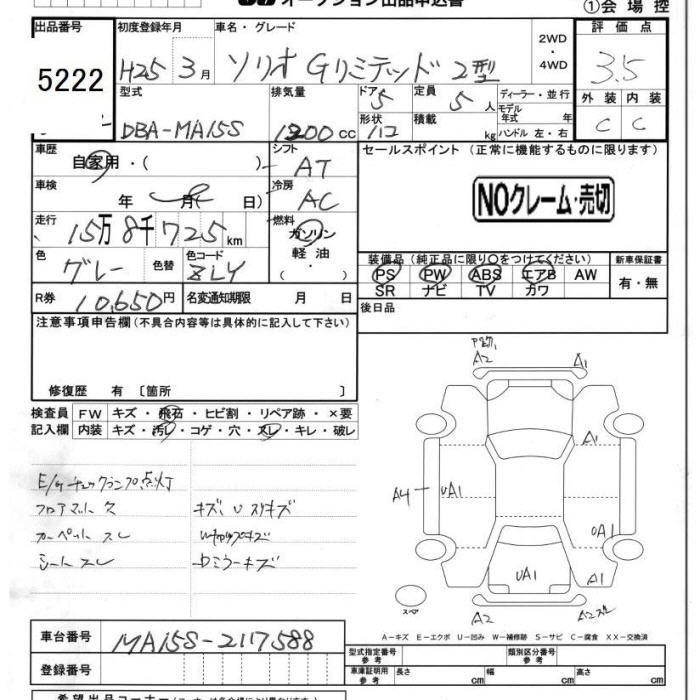 オークション出品申込書
①会場控
出品番号 初度登録年月 車名・グレード 評価点
5222 H25 3月 ソリオ Gリミテッド 2型 2WD ・ 4WD 3.5
型式 排気量 ドア 5 定員 5人 ディーラー・並行 外装 内装
DBA-MA15S 1200cc 形状 積載 kg モデル年式 年 ハンドル 左・右 C C
車歴 自家用・( ) シフト AT セールスポイント(正常に機能するものに限ります)
車検 年 月( 日) 冷房 AC NOクレーム・売切
走行 15万8千725km 燃料 ガソリン ・ 軽油 ・( )
装備品(純正品に限り○をつけてください) 新車保証書
色 グレー 色替 色コード ZLY PS PW ABS エアB AW 有・無
SR ナビ TV カワ
R券 10,650円 名変通知期限 月 日 後日品
注意事項申告欄(不具合内容等は具体的に記入して下さい)
修復歴 有 〔箇所 〕
検査員 FW キズ・飛石・ヒビ割・リペア跡・×要
記入欄 内装 キズ・汚レ・コゲ・穴・スレ・キレ・破レ
E/gチェックランプ点灯
フロアマット欠 キズ、U スリキズ
カーペット スレ
シート スレ ドミラーキズ
A2 A1
A1
A4 UA1
UA1
UA1 A1
スペア A2 A2
A−キズ E−エクボ U−凹み W−補修跡 S−サビ C−腐食 XX−交換済
車台番号 MA15S-2117588 型式指定番号 参考 類別区分番号 参考
登録番号 車庫証明用 参考 長さ cm 幅 cm 高さ cm
希望出品コーナー